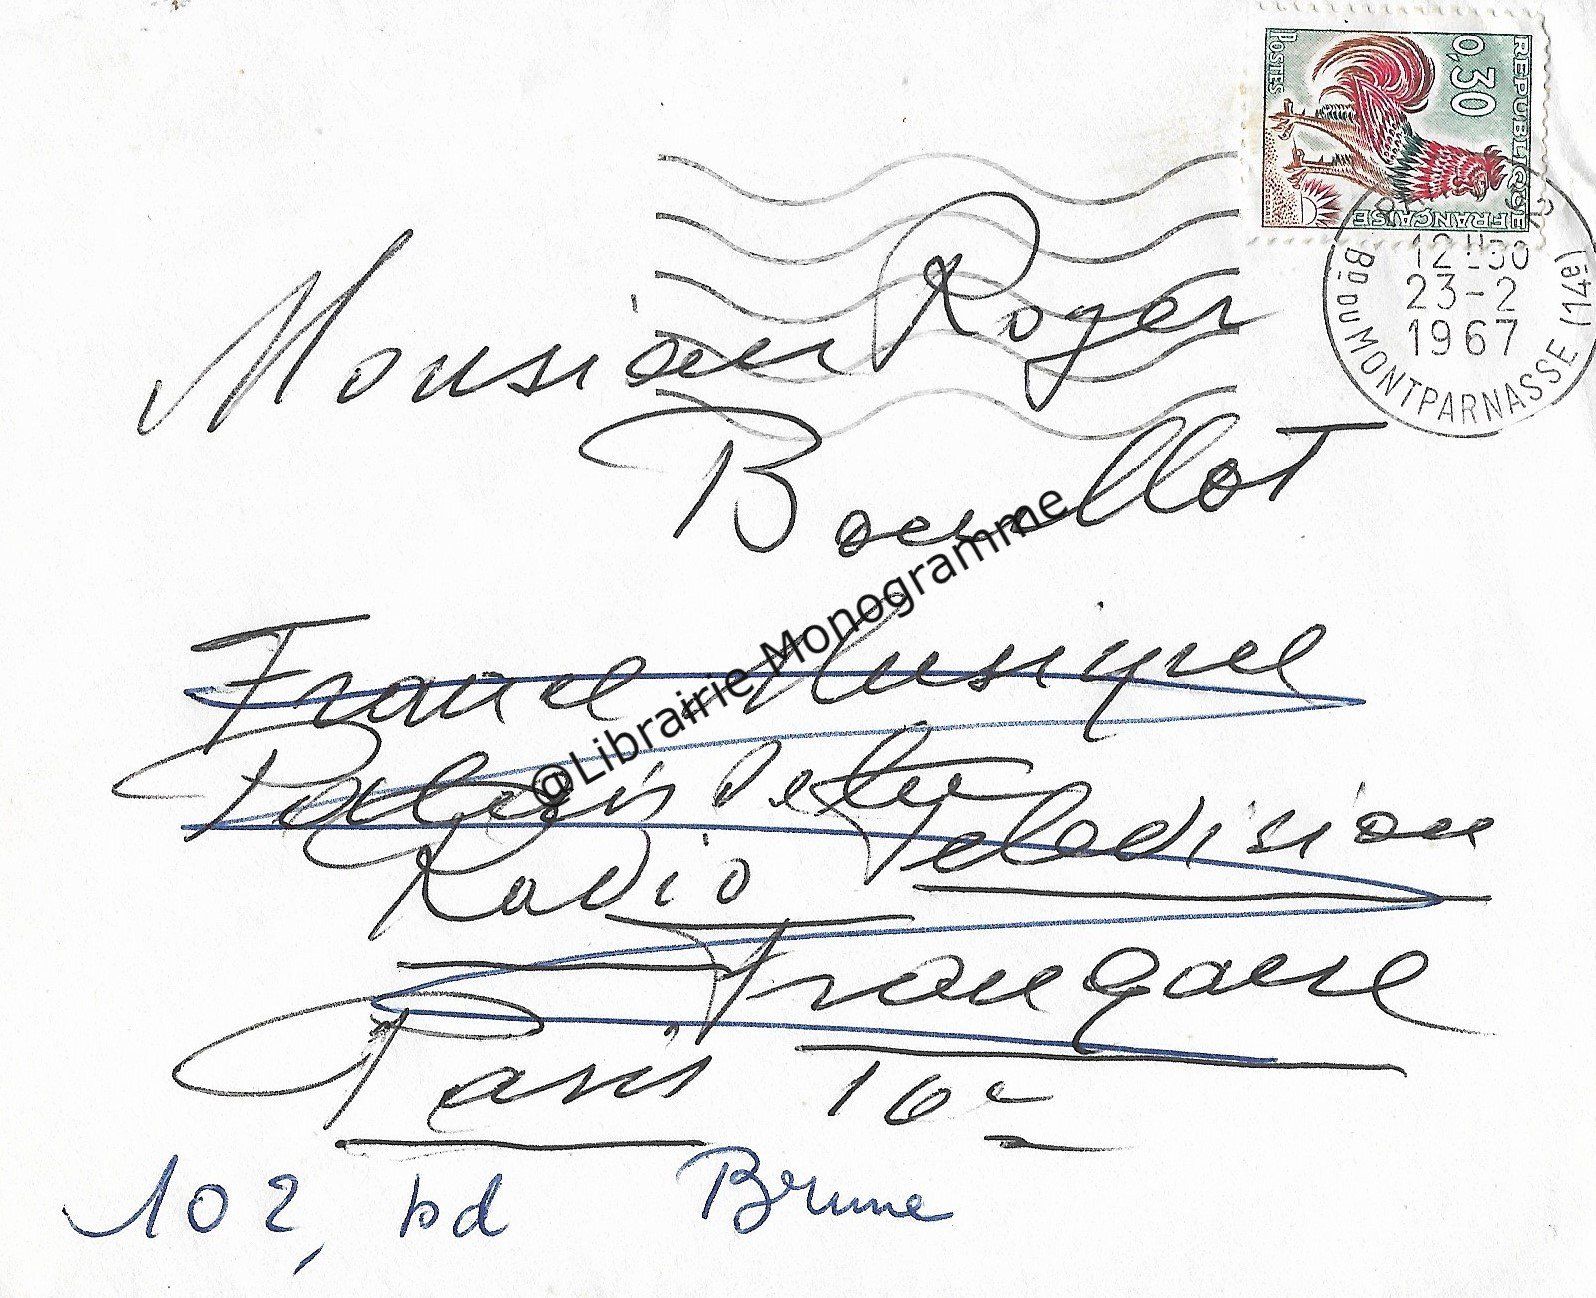 REPUBLIQUE FRANÇAISE
0,30
POSTES
12H30
23-2
1967
Bd DU MONTPARNASSE (14e)
Monsieur Roger
Boullot
France Musique
Palais de la
Radio Télévision
Française
Paris 16e
102, bd Brune
@Librairie Monogramme